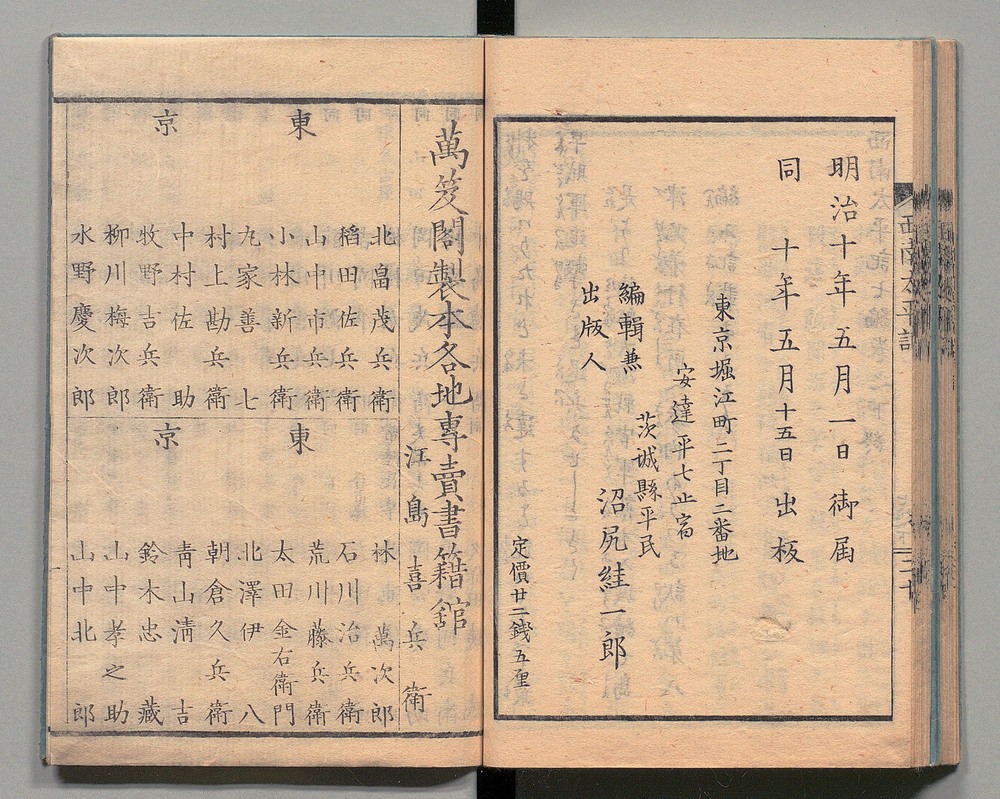 西南太平記
二十
明治十年五月一日御届
同十年五月十五日出板
東京堀江町二丁目二番地
安達平七止宿
茨城縣平民
編輯兼
出版人
沼尻絓一郎
定價廿二錢五厘
萬笈閣製本各地專賣書籍舘
江島喜兵衛
東京
北畠茂兵衛
稻田佐兵衛
山中市兵衛
小林新兵衛
九家善七
村上勘兵衛
中村佐助
牧野吉兵衛
柳川梅次郎
水野慶次郎
東京
林萬次郎
石川治兵衛
荒川藤兵衛
太田金右衛門
北澤伊八
朝倉久兵衛
靑山淸吉
鈴木忠藏
山中孝之助
山中北郎